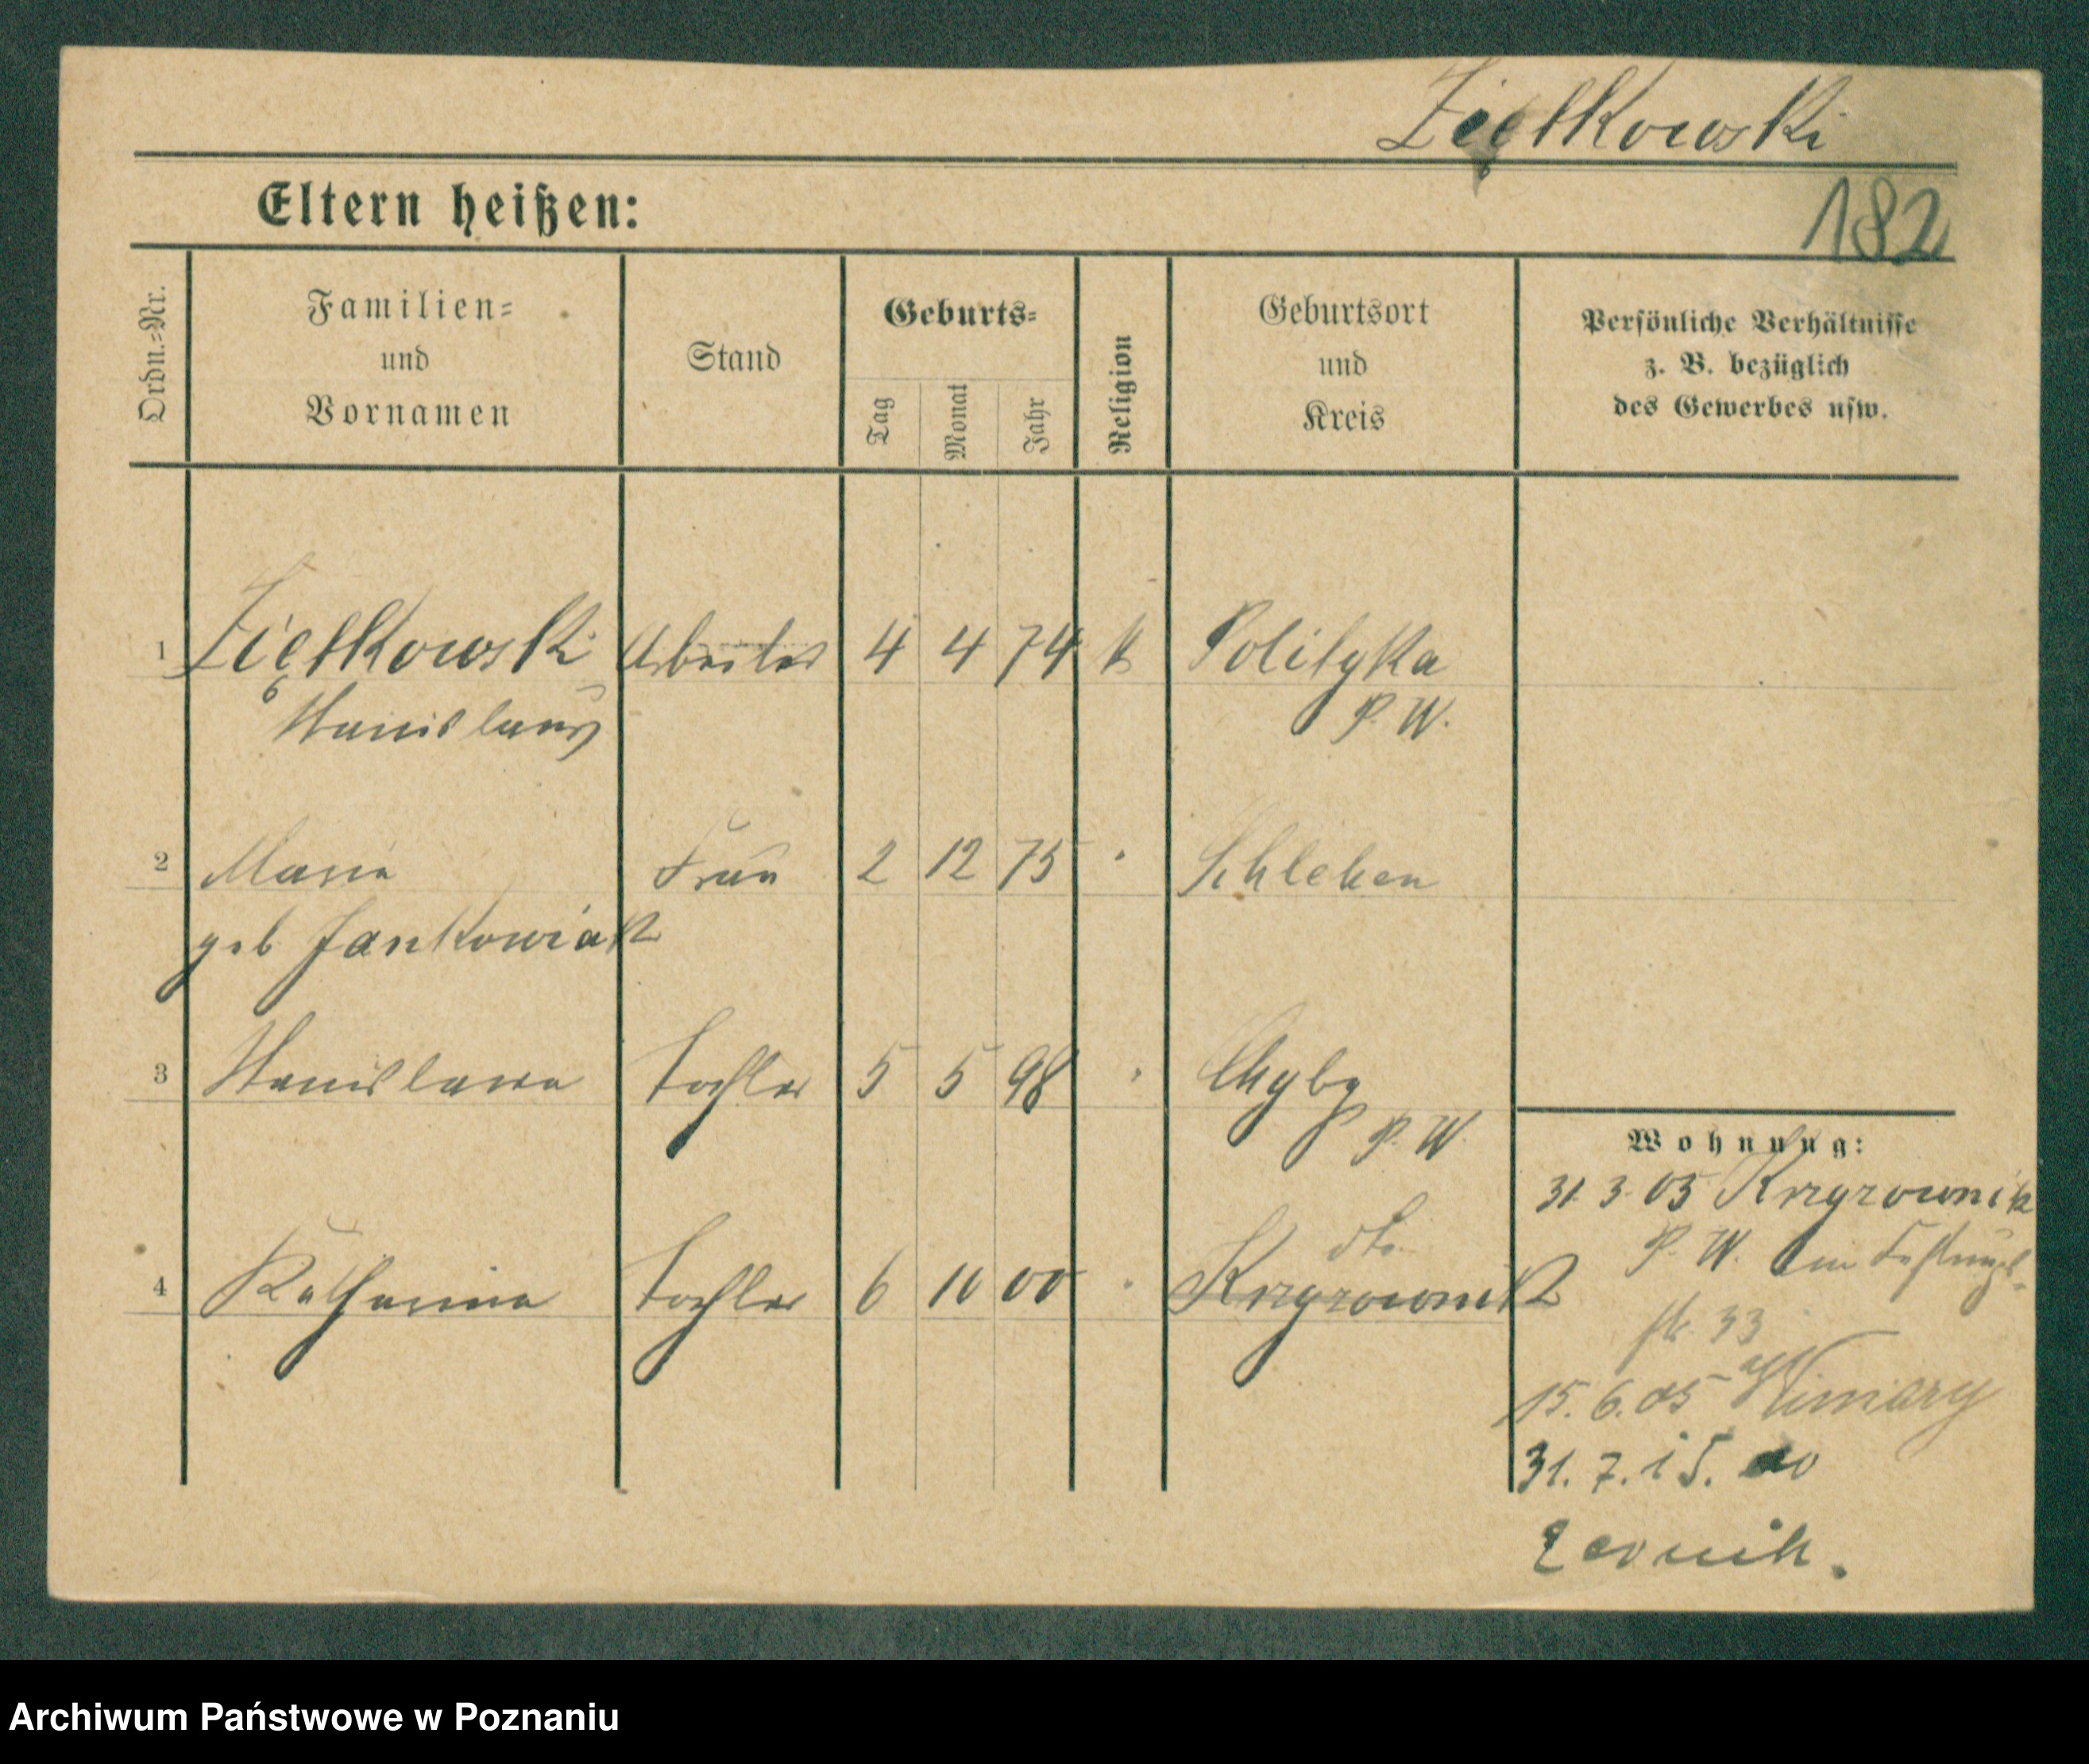 Ziętkowski
182
Eltern heißen:
Ordn.=Nr.
Familien=
und
Vornamen
Stand
Geburts=
Tag
Monat
Jahr
Religion
Geburtsort
und
Kreis
Persönliche Verhältnisse
z. B. bezüglich
des Gewerbes usw.
1 Ziętkowski Arbeiter 4 4 74 k Polityka
Stanislaus P. W.
2 Maria Frau 2 12 75 " Schlehen
geb Jankowiak
3 Stanislawa Tochter 5 5 98 " Chyby
P. W.
4 Katharina Tochter 6 10 00 " Krzyzownik
dto.
Wohnung:
31 3 05 Krzyzownik
P. W.
33
15. 6. 05
31. 7. 15.